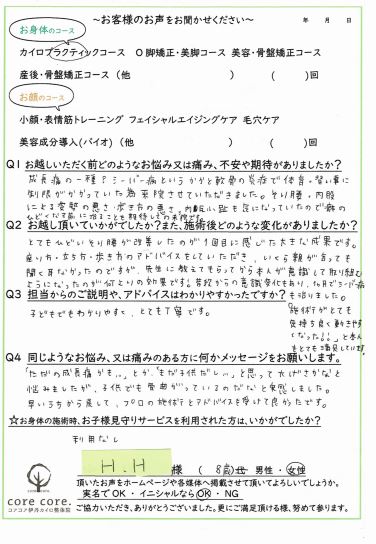 ～お客様のお声をお聞かせください～ 年 月 日
お身体のコース
カイロプラクティックコース O脚矯正・美脚コース 美容・骨盤矯正コース
産後・骨盤矯正コース（他 ） （ ）回
お顔のコース
小顔・表情筋トレーニング フェイシャルエイジングケア 毛穴ケア
美容成分導入(バイオ)（他 ） （ ）回
Q1 お越しいただく前どのようなお悩み又は痛み、不安や期待がありましたか？
成長痛の一種？シーバー病というかかと軟骨の炎症で体育や習い事に
制限がかかっていた為来院させていただきました。そり腰、内股
による姿勢の悪さ・歩き方の悪さ、
Q2 お越し頂いていかがでしたか？また、施術後どのような変化がありましたか？
とてもひどいそり腰が改善したのが1回目に感じた大きな成果です。
座り方・立ち方・歩き方のアドバイスをしていただき、いくら親が言っても
聞く耳なかったのですが、先生に教えてもらってから本人が意識して取り組む
ようになったのが何よりの効果です。普段からの意識変化もあり、1か月でシーバー病
も治りました。
Q3 担当からのご説明や、アドバイスはわかりやすかったですか？
子どもでもわかりやすく、とても丁寧です。
"施術がとても
気持ち良く動きやす
くなった!!"と本人
もとても満足しています。
Q4 同じようなお悩み、又は痛みのある方に何かメッセージをお願いします。
「ただの成長痛かも…」とか、「まだ子供だし…」と思って大げさかなと
悩みましたが、子供でも骨曲がっているのだなと実感しました。
早いうちから正して、プロの施術とアドバイスを受けて良かったです。
☆お身体の施術時、お子様見守りサービスを利用された方は、いかがでしたか？
利用なし
H.H 様 （ 8歳 ） 男性・女性
頂いたお声をホームページや各媒体へ掲載させて頂いてよろしいでしょうか。
実名でOK・イニシャルならOK・NG
ご協力いただき、ありがとうございました。更にご満足頂ける様、努めて参ります。
core core.
コアコア伊丹カイロ整体院